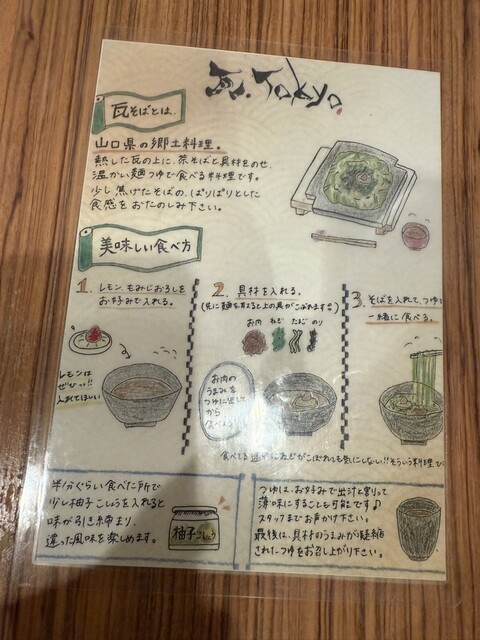 瓦.Tokyo.
瓦そばとは、
山口県の郷土料理。
熱した瓦の上に、茶そばと具材をのせ、
温かい麺つゆで食べる料理です。
少し焦げたそばの、ぱりぱりとした
食感をおたのしみ下さい。
美味しい食べ方
1. レモン、もみじおろしを
お好みで入れる。
レモンは
ぜひっ!!
入れてほしい
2. 具材を入れる。
(先に麺を食べると上の具がこぼれます。)
お肉 ねぎ たまご のり
お肉の
うまみを
つゆに
から
3. そばを入れて、つゆと
一緒に食べる。
食べてる途中にねぎがこぼれても気にしない!!そういう料理で
半分ぐらい食べた所で
少し柚子こしょうを入れると
味が引き締まり、
違った風味を楽しめます。
柚子こしょう
つゆは、お好みで出汁と割って
薄味にすることも可能です♪
スタッフまでお声かけ下さい。
最後は、具材のうまみが凝縮
されたつゆをお召し上がり下さい。